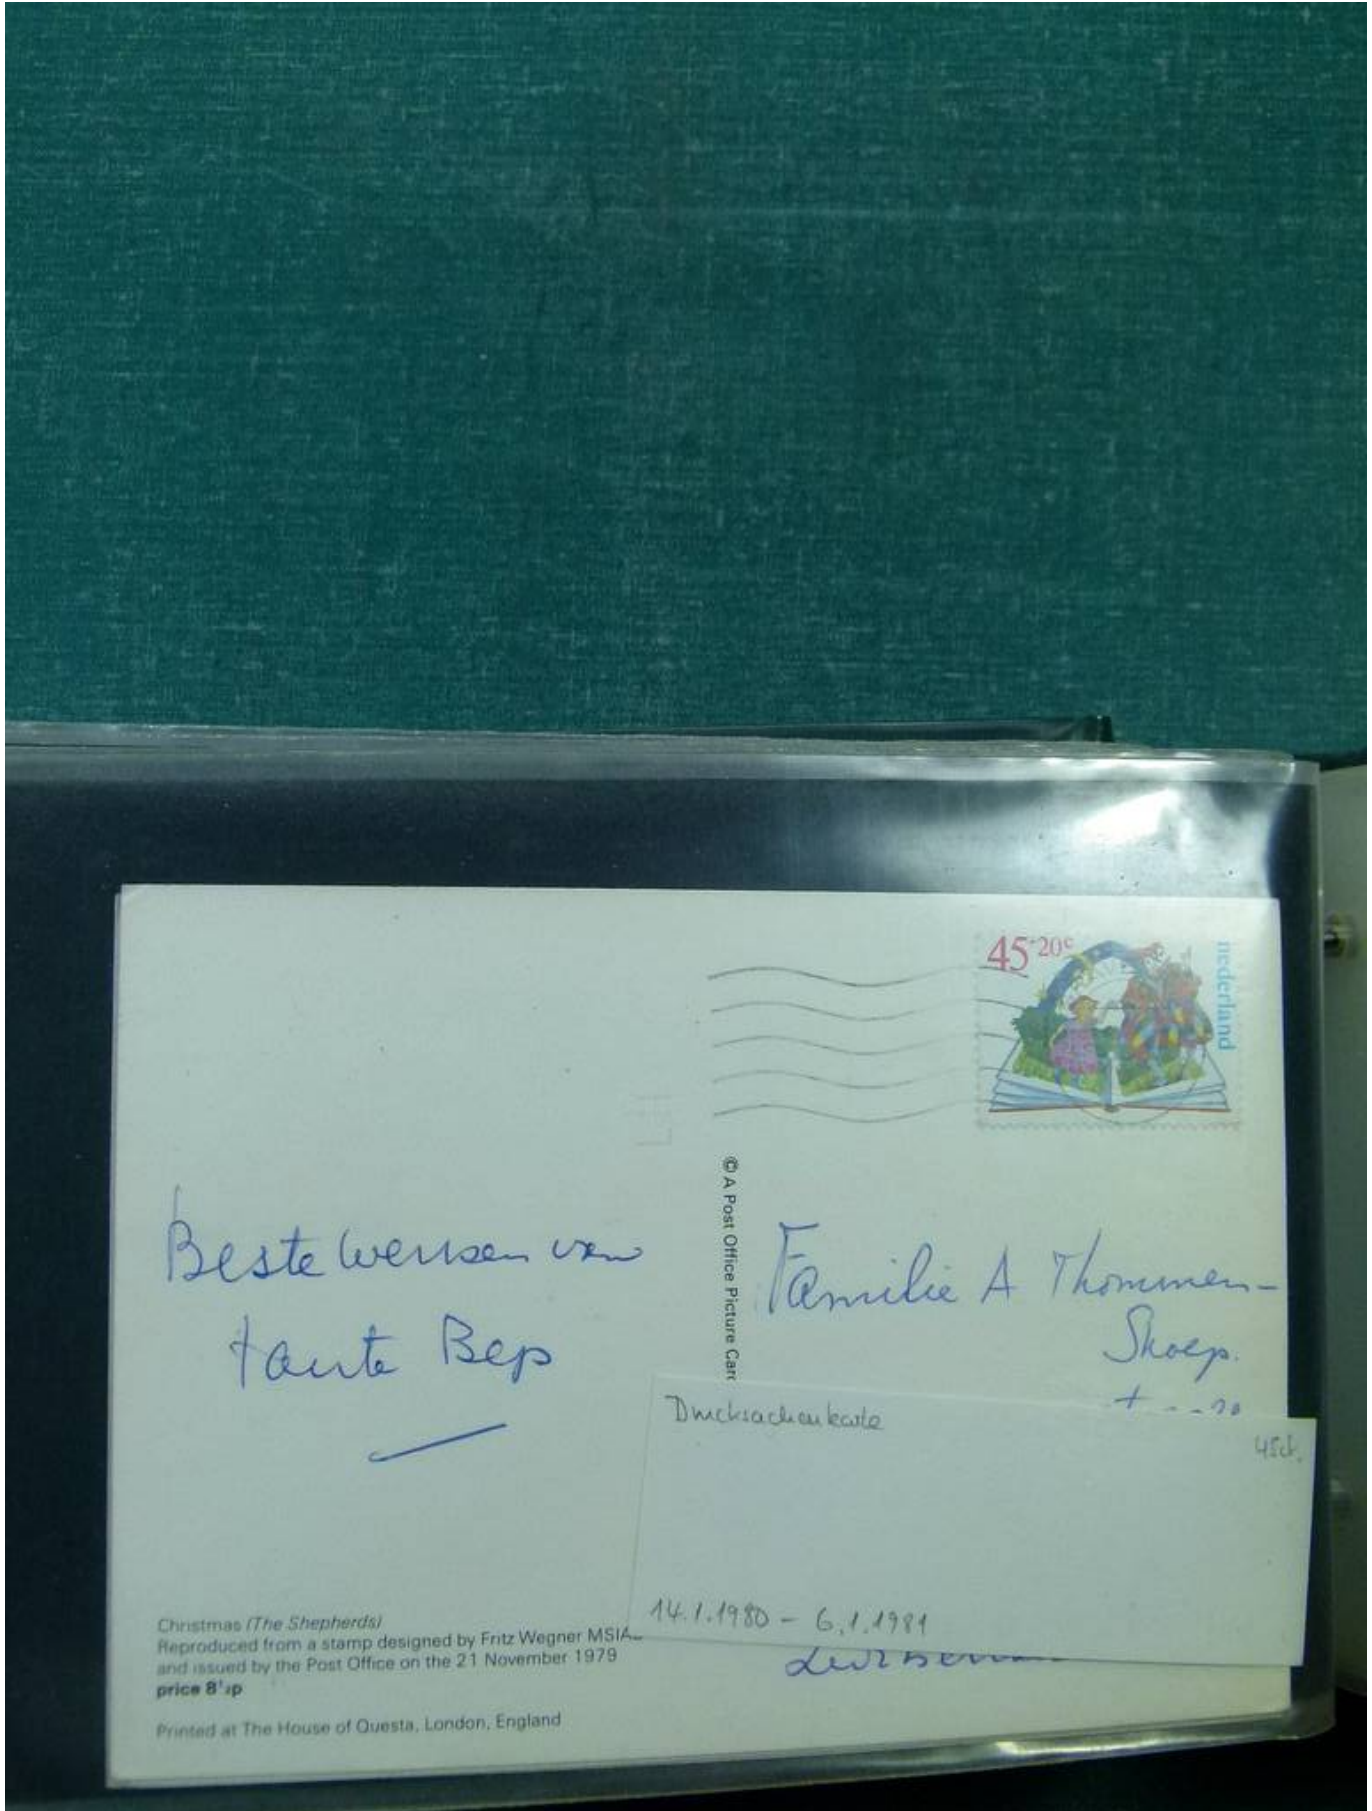 45+20c
nederland
© A Post Office Picture Card
Beste wensen van
tante Bep
Familie A Thommen-
Skoep.
Drucksachenkarte
45ct.
14.1.1980 - 6.1.1981
Christmas (The Shepherds)
Reproduced from a stamp designed by Fritz Wegner MSIA
and issued by the Post Office on the 21 November 1979
price 8½p
Printed at The House of Questa, London, England